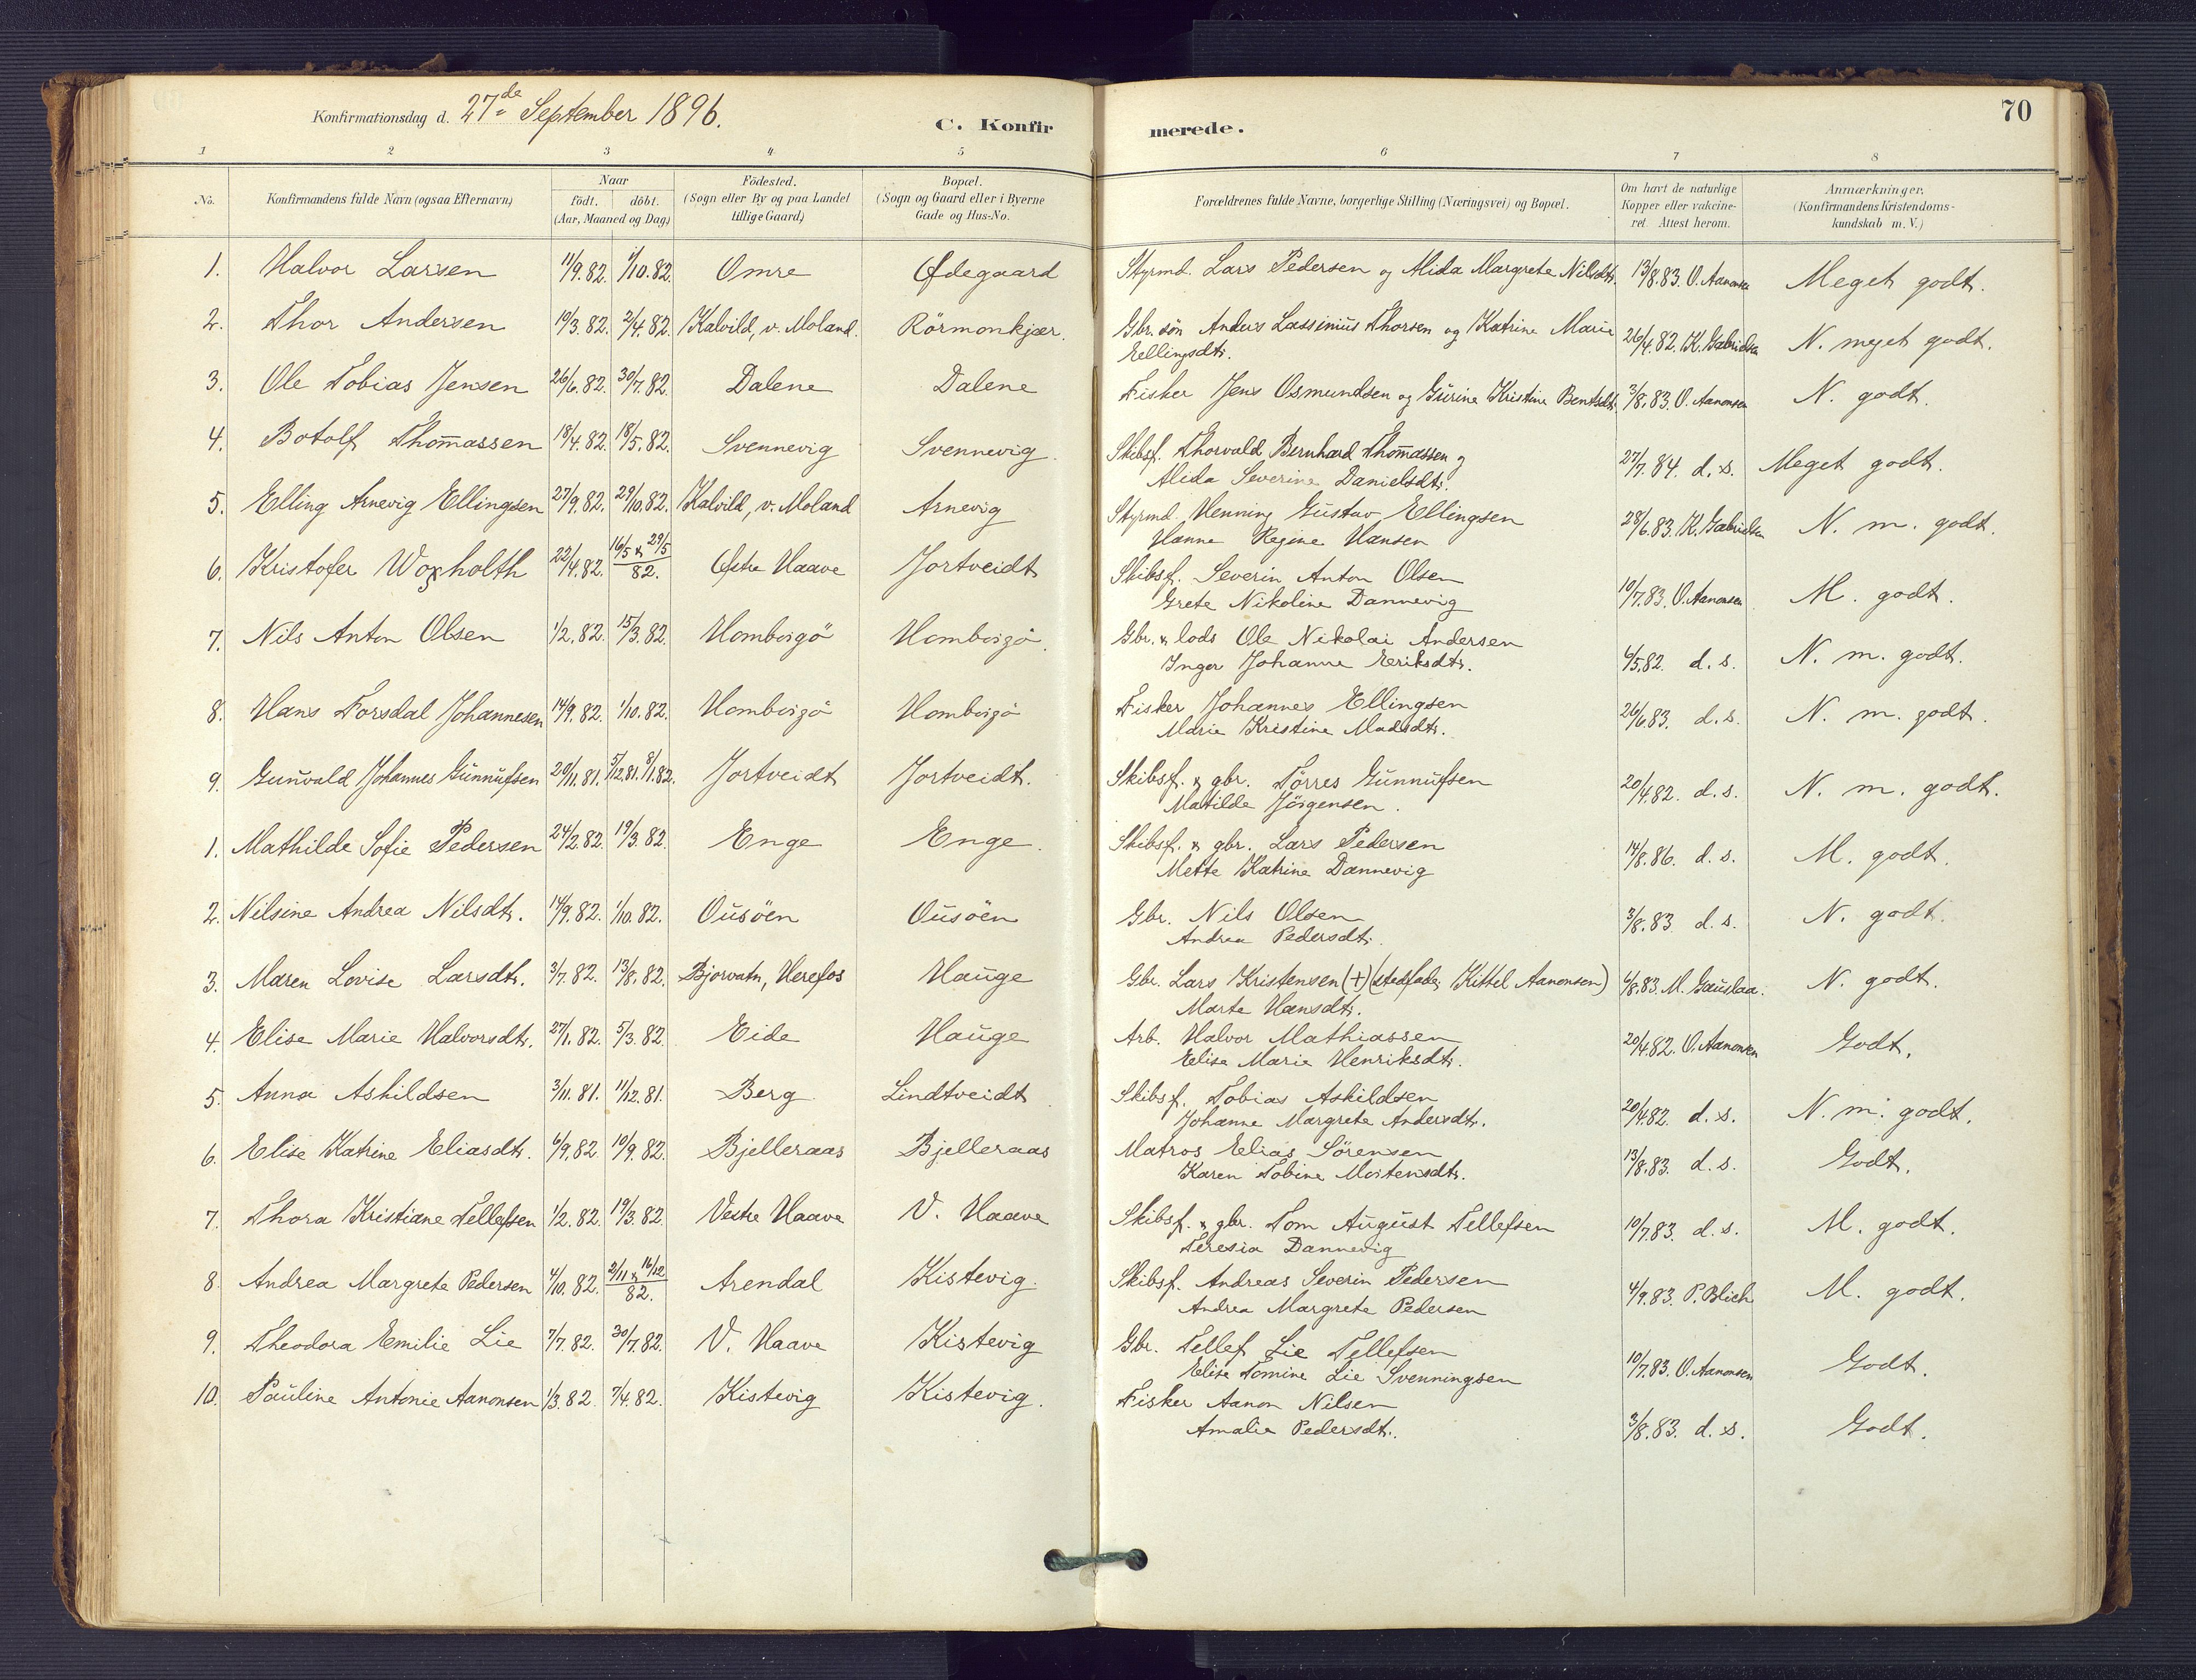 70
Konfirmationsdag d. 27de September 1896.
C. Konfirmerede.
1 2 3 4 5 6 7 8
No. Konfirmandens fulde Navn (ogsaa Efternavn) Naar födt. döbt. (Aar, Maaned og Dag) Födested. (Sogn eller By og paa Landet tillige Gaard) Bopæl. (Sogn og Gaard eller i Byerne Gade og Hus-No. Forældrenes fulde Navne, borgerlige Stilling (Næringsvei) og Bopæl. Om havt de naturlige Kopper eller vakcineret. Attest herom. Anmærkninger, (Konfirmandens Kristendomskundskab m. V.)
1. Halvor Larsen 11/9.82. 1/10.82. Omre Ødegaard Styrmd. Lars Pedersen og Alida Margrete Nilsdtr. 13/8.83. O. Aanonsen Meget godt.
2. Thor Andersen 19/3.82. 2/4.82. Kalvild, v. Moland. Rörmonkjær. Gbr. sön Anders Lassinius Thorsen og Katrine Marie
Ellingsdtr. 26/4.82. K. Gabrielsen N. meget godt.
3. Ole Tobias Jensen 26/6.82. 30/7.82. Dalene Dalene Fisker Jens Osmundsen og Gurine Kristine Bentsdtr. 3/8.83. O. Aanonsen N. godt.
4. Botolf Thomassen 18/4.82. 18/5.82. Svennevig Svennevig. Skibsf. Thorvald Bernhard Thomassen og
Alida Severine Danielsdtr. 27/7.84. d.s. Meget godt.
5. Elling Arnevig Ellingsen 27/9.82. 29/10.82. Kalvild, v. Moland Arnevig Styrmd. Henning Gustav Ellingsen
Hanne Regine Hansen 28/6.83. K. Gabrielsen N. m. godt.
6. Kristofer Woxholth 22/4.82. 16/5 & 29/5 82. Østre Haave Jortveidt Skibsf. Severin Anton Olsen
Grete Nikoline Dannevig 10/7.83. O. Aanonsen M. godt.
7. Nils Anton Olsen 1/2.82. 15/3.82. Homborgö Homborgö. Gbr. & lods Ole Nikolai Andersen
Inger Johanne Eriksdtr. 6/5.82. d.s. N. m. godt.
8. Hans Forsdal Johannesen 14/9.82. 1/10.82. Homborgö Homborgö Fisker Johannes Ellingsen
Marie Kristine Madsdtr. 26/6.83. d.s. N. m. godt.
9. Gunvald Johannes Gunnufsen 20/11.81. 5/12.81. 8/1.82. Jortveidt Jortveidt. Skibsf. & gbr. Törres Gunnufsen
Matilde Jörgensen. 20/4.82. d.s. N. m. godt.
1. Mathilde Sofie Pedersen 24/2.82. 19/3.82. Enge Enge. Skibsf. & gbr. Lars Pedersen
Mette Katrine Dannevig 14/8.86. d.s. M. godt.
2. Nilsine Andrea Nilsdtr. 14/9.82. 1/10.82. Ousöen Ousöen Gbr. Nils Olsen
Andrea Pedersdtr. 3/8.83 d.s. N. godt.
3. Maren Lovise Larsdtr. 3/7.82. 13/8.82. Bjorvatn, Herefos Hauge Gbr. Lars Kristensen (+) (stedfader Kittel Aanonsen)
Marte Hansdtr. 6/8.83. M. Gauslaa. N. godt.
4. Elise Marie Halvorsdtr. 27/1.82. 5/3.82. Eide Hauge Arb. Halvor Mathiassen
Elise Marie Henriksdtr. 20/4.82. O. Aanonsen Godt.
5. Anna Askildsen 3/11.81. 11/12.81. Berg Lindtveidt Skibsf. Tobias Askildsen
Johanne Margrete Andersdtr. 20/4.82. d.s. N. m. godt.
6. Elise Katrine Eliasdtr. 6/9.82. 10/9.82. Bjelleraas Bjelleraas Matros Elias Sörensen
Karen Tobine Mortensdtr. 13/8.83. d.s. Godt.
7. Thora Kristiane Tellefsen 1/2.82. 19/3.82. Vestre Haave V. Haave Skibsf. & gbr. Tom August Tellefsen
Teresia Dannevig 10/7.83. d.s. M. godt.
8. Andrea Margrete Pedersen 4/10.82. 2/11 & 16/12 82. Arendal Kistevig. Skibsf. Andreas Severin Pedersen
Andrea Margrete Pedersen 4/9.83. P. Blich M. godt.
9. Theodora Emilie Lie 7/7.82. 30/7.82. V. Haave Kistevig Gbr. Tellef Lie Tellefsen
Elise Tomine Lie Svenningsen 10/7.83. O. Aanonsen Godt.
10. Pauline Antonie Aanonsen 1/3.82. 7/4.82. Kistevig Kistevig. Fisker Aanon Nilsen
Amalie Pedersdtr. 3/8.83. d.s. Godt.